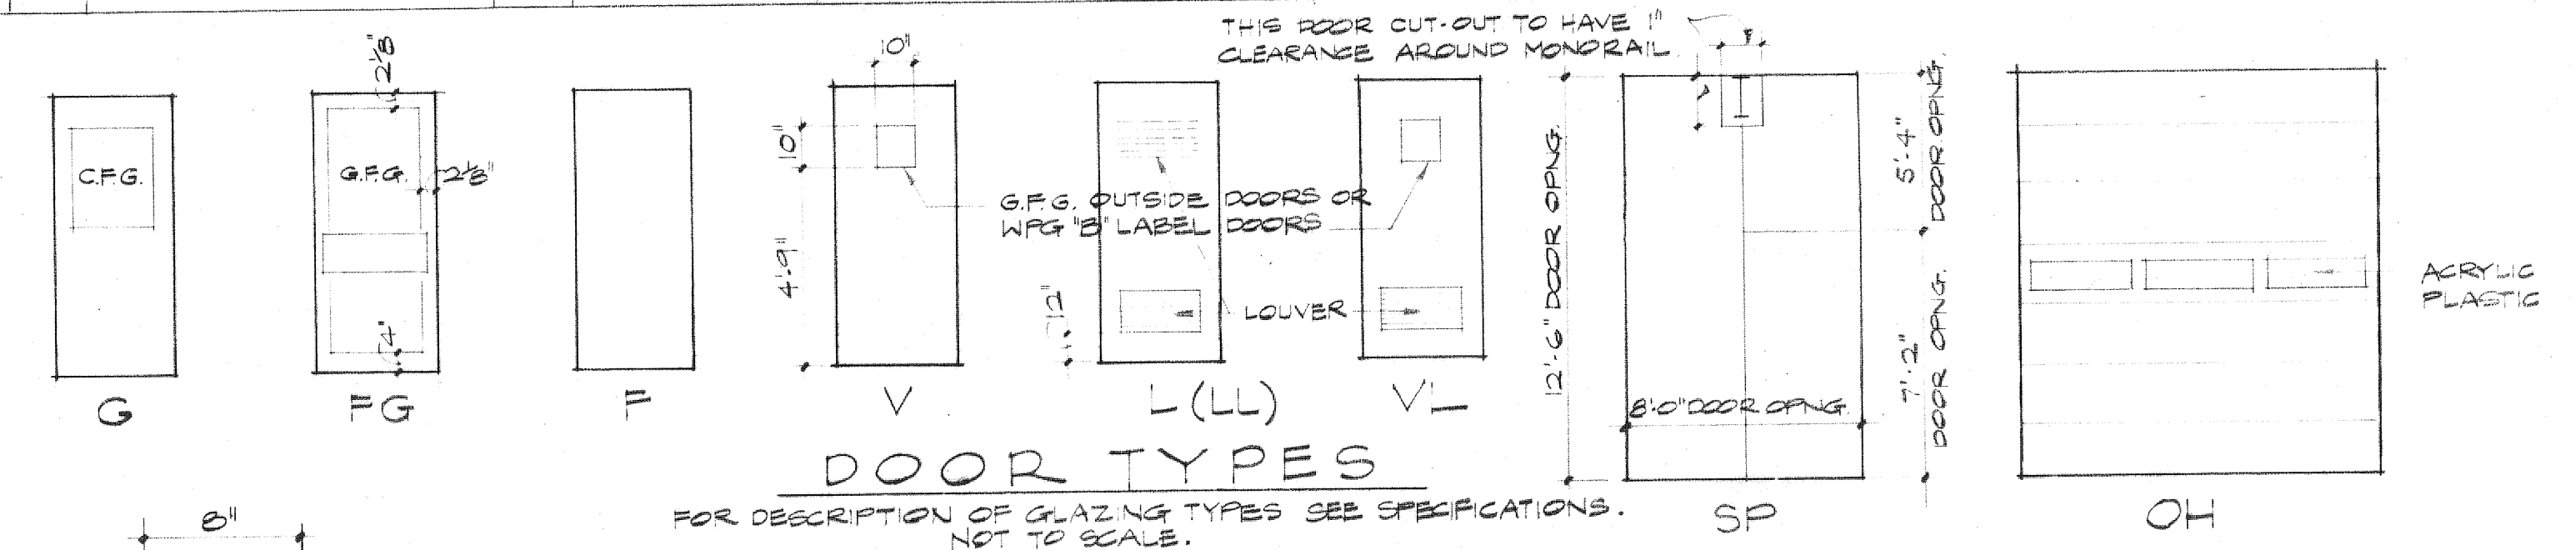 THIS DOOR CUT-OUT TO HAVE 1"
CLEARANCE AROUND MONORAIL.
C.F.G.
G
2 1/8"
G.F.G.
2 1/8"
4"
FG
F
10"
10"
4'-9"
V
G.F.G. OUTSIDE DOORS OR
WPG "B" LABEL DOORS
12"
LOUVER
L (LL)
VL
12'-6" DOOR OPNG.
8'-0" DOOR OPNG.
5'-4"
DOOR OPNG.
7'-2"
DOOR OPNG.
SP
ACRYLIC
PLASTIC
OH
DOOR TYPES
FOR DESCRIPTION OF GLAZING TYPES SEE SPECIFICATIONS.
NOT TO SCALE.
8"